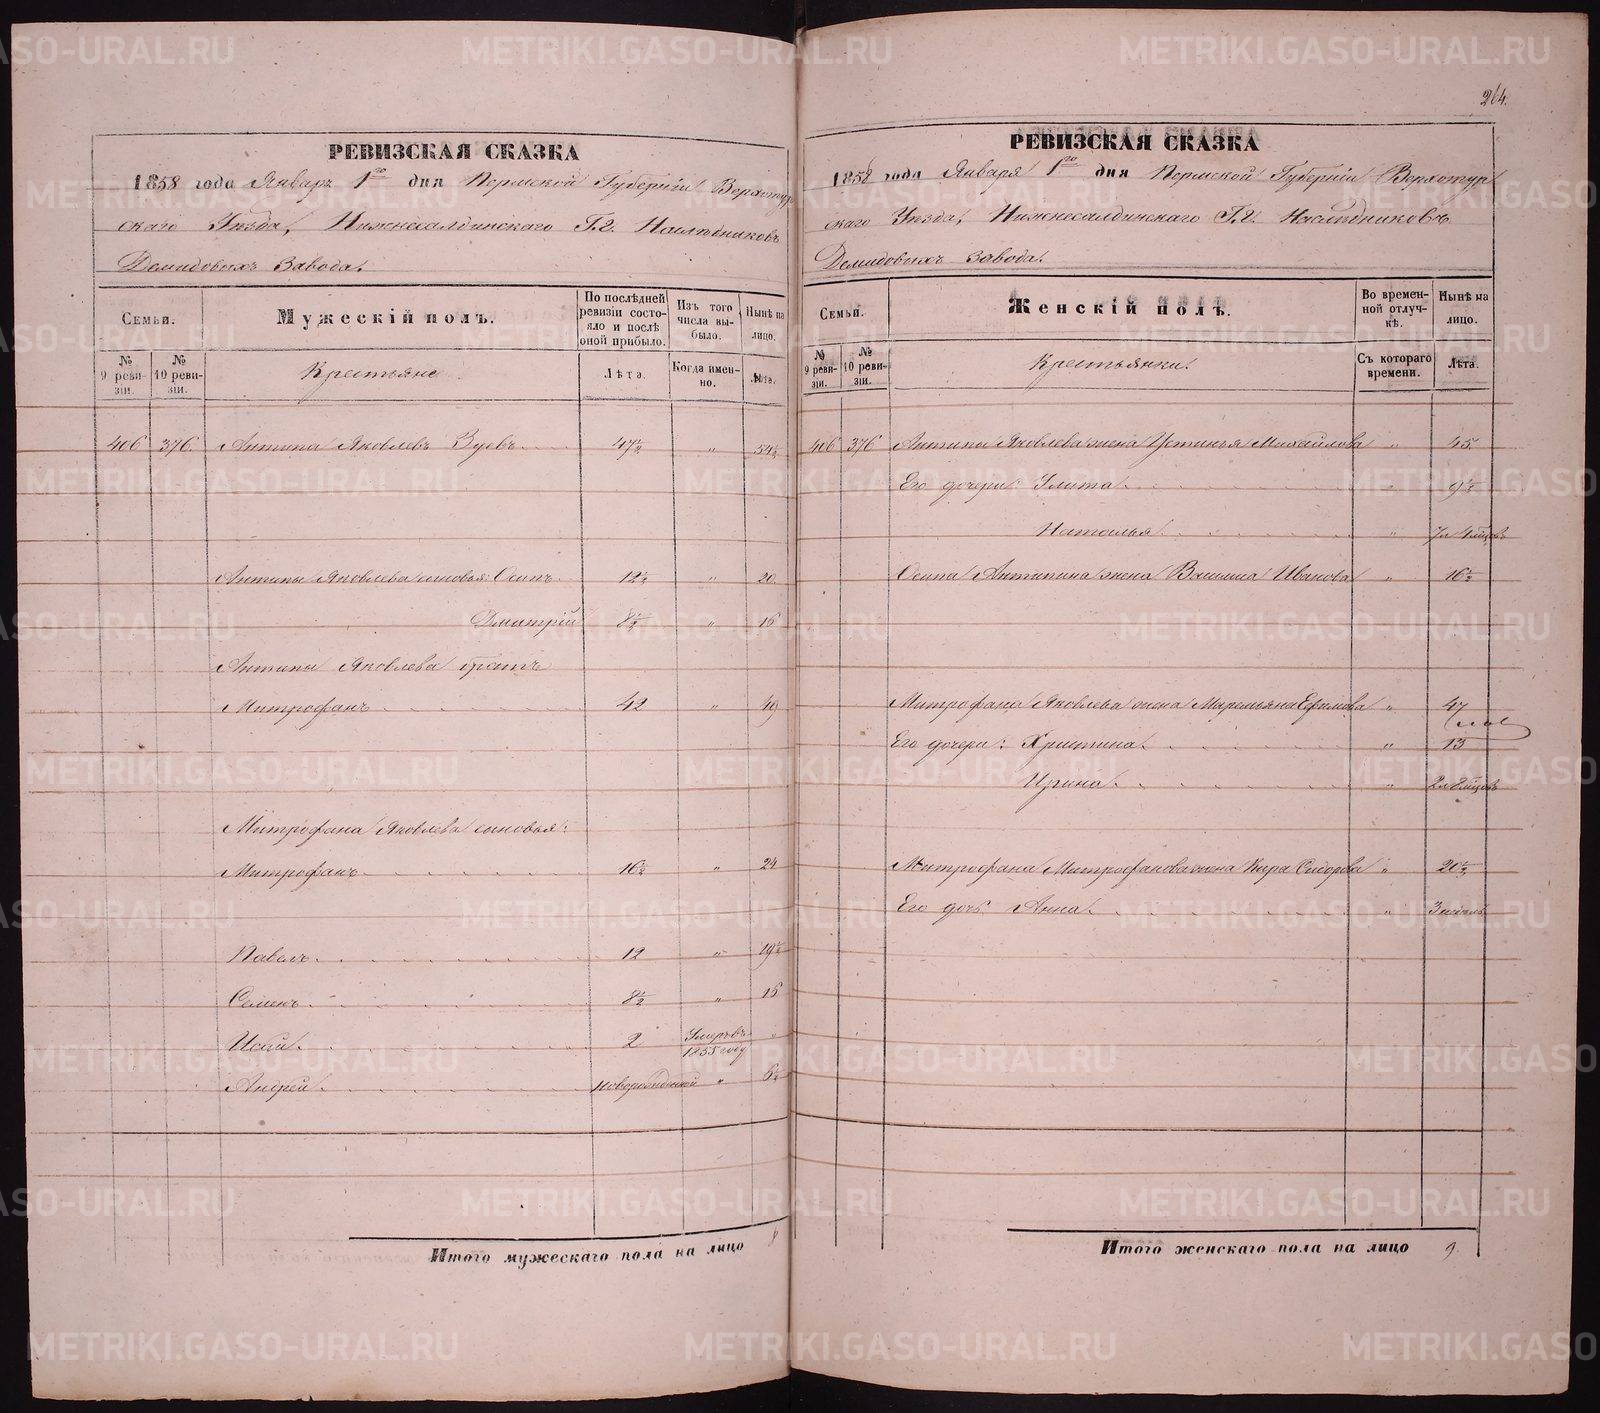 264.
РЕВИЗСКАЯ СКАЗКА
1858 года Января 1го дня Пермской Губернiи Верхотур
скаго Уѣзда, Нижнесалдинскаго Г.г. Наслѣдниковъ
Демидовыхъ Завода.
Семьи.
Мужескiй полъ.
По послѣдней ревизiи состояло и послѣ оной прибыло.
Изъ того числа выбыло.
Нынѣ на лицо.
№ 9 ревизiи.
№ 10 ревизiи.
Крестьяне
Лѣта.
Когда именно.
Лѣта.
406 376. Антипа Яковлевъ Зуевъ 47½ " 54½
Антипы Яковлева сыновья: Осипъ 12½ " 20
Дмитрiй 8½ " 16
Антипы Яковлева братъ
Митрофанъ 42 " 49
Митрофана Яковлева сыновья:
Митрофанъ 16½ " 24
Павелъ 12 " 19½
Семенъ 8½ " 16
Исай 2 Умеръ въ 1855 году "
Андрей новорожденной " 6½
Итого мужескаго пола на лицо 8
РЕВИЗСКАЯ СКАЗКА
1858 года Января 1го дня Пермской Губернiи Верхотур
скаго Уѣзда, Нижнесалдинскаго Г.г. Наслѣдниковъ
Демидовыхъ Завода.
Семьи.
Женскiй полъ.
Во временной отлучкѣ.
Нынѣ на лицо.
№ 9 ревизiи.
№ 10 ревизiи.
Крестьянки.
Съ котораго времени.
Лѣта.
406 376 Антипы Яковлева жена Устинья Михайлова " 45
Его дочери: Улита " 9½
Наталья " 7 л 4 мцовъ
Осипа Антипина жена Василиса Иванова " 16½
Митрофана Яковлева жена Маремьяна Ефимова " 47
Его дочери: Христина " 13
Ирина " 2 л 8 мцовъ
Митрофана Митрофанова жена Кира Сидорова " 20½
Его дочь Анна " 3 недель
Итого женскаго пола на лицо 9.
METRIKI.GASO-URAL.RU